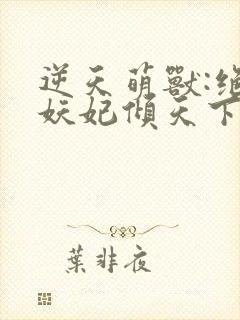 逆天萌獸:絕
妖妃傾天下
葉非夜